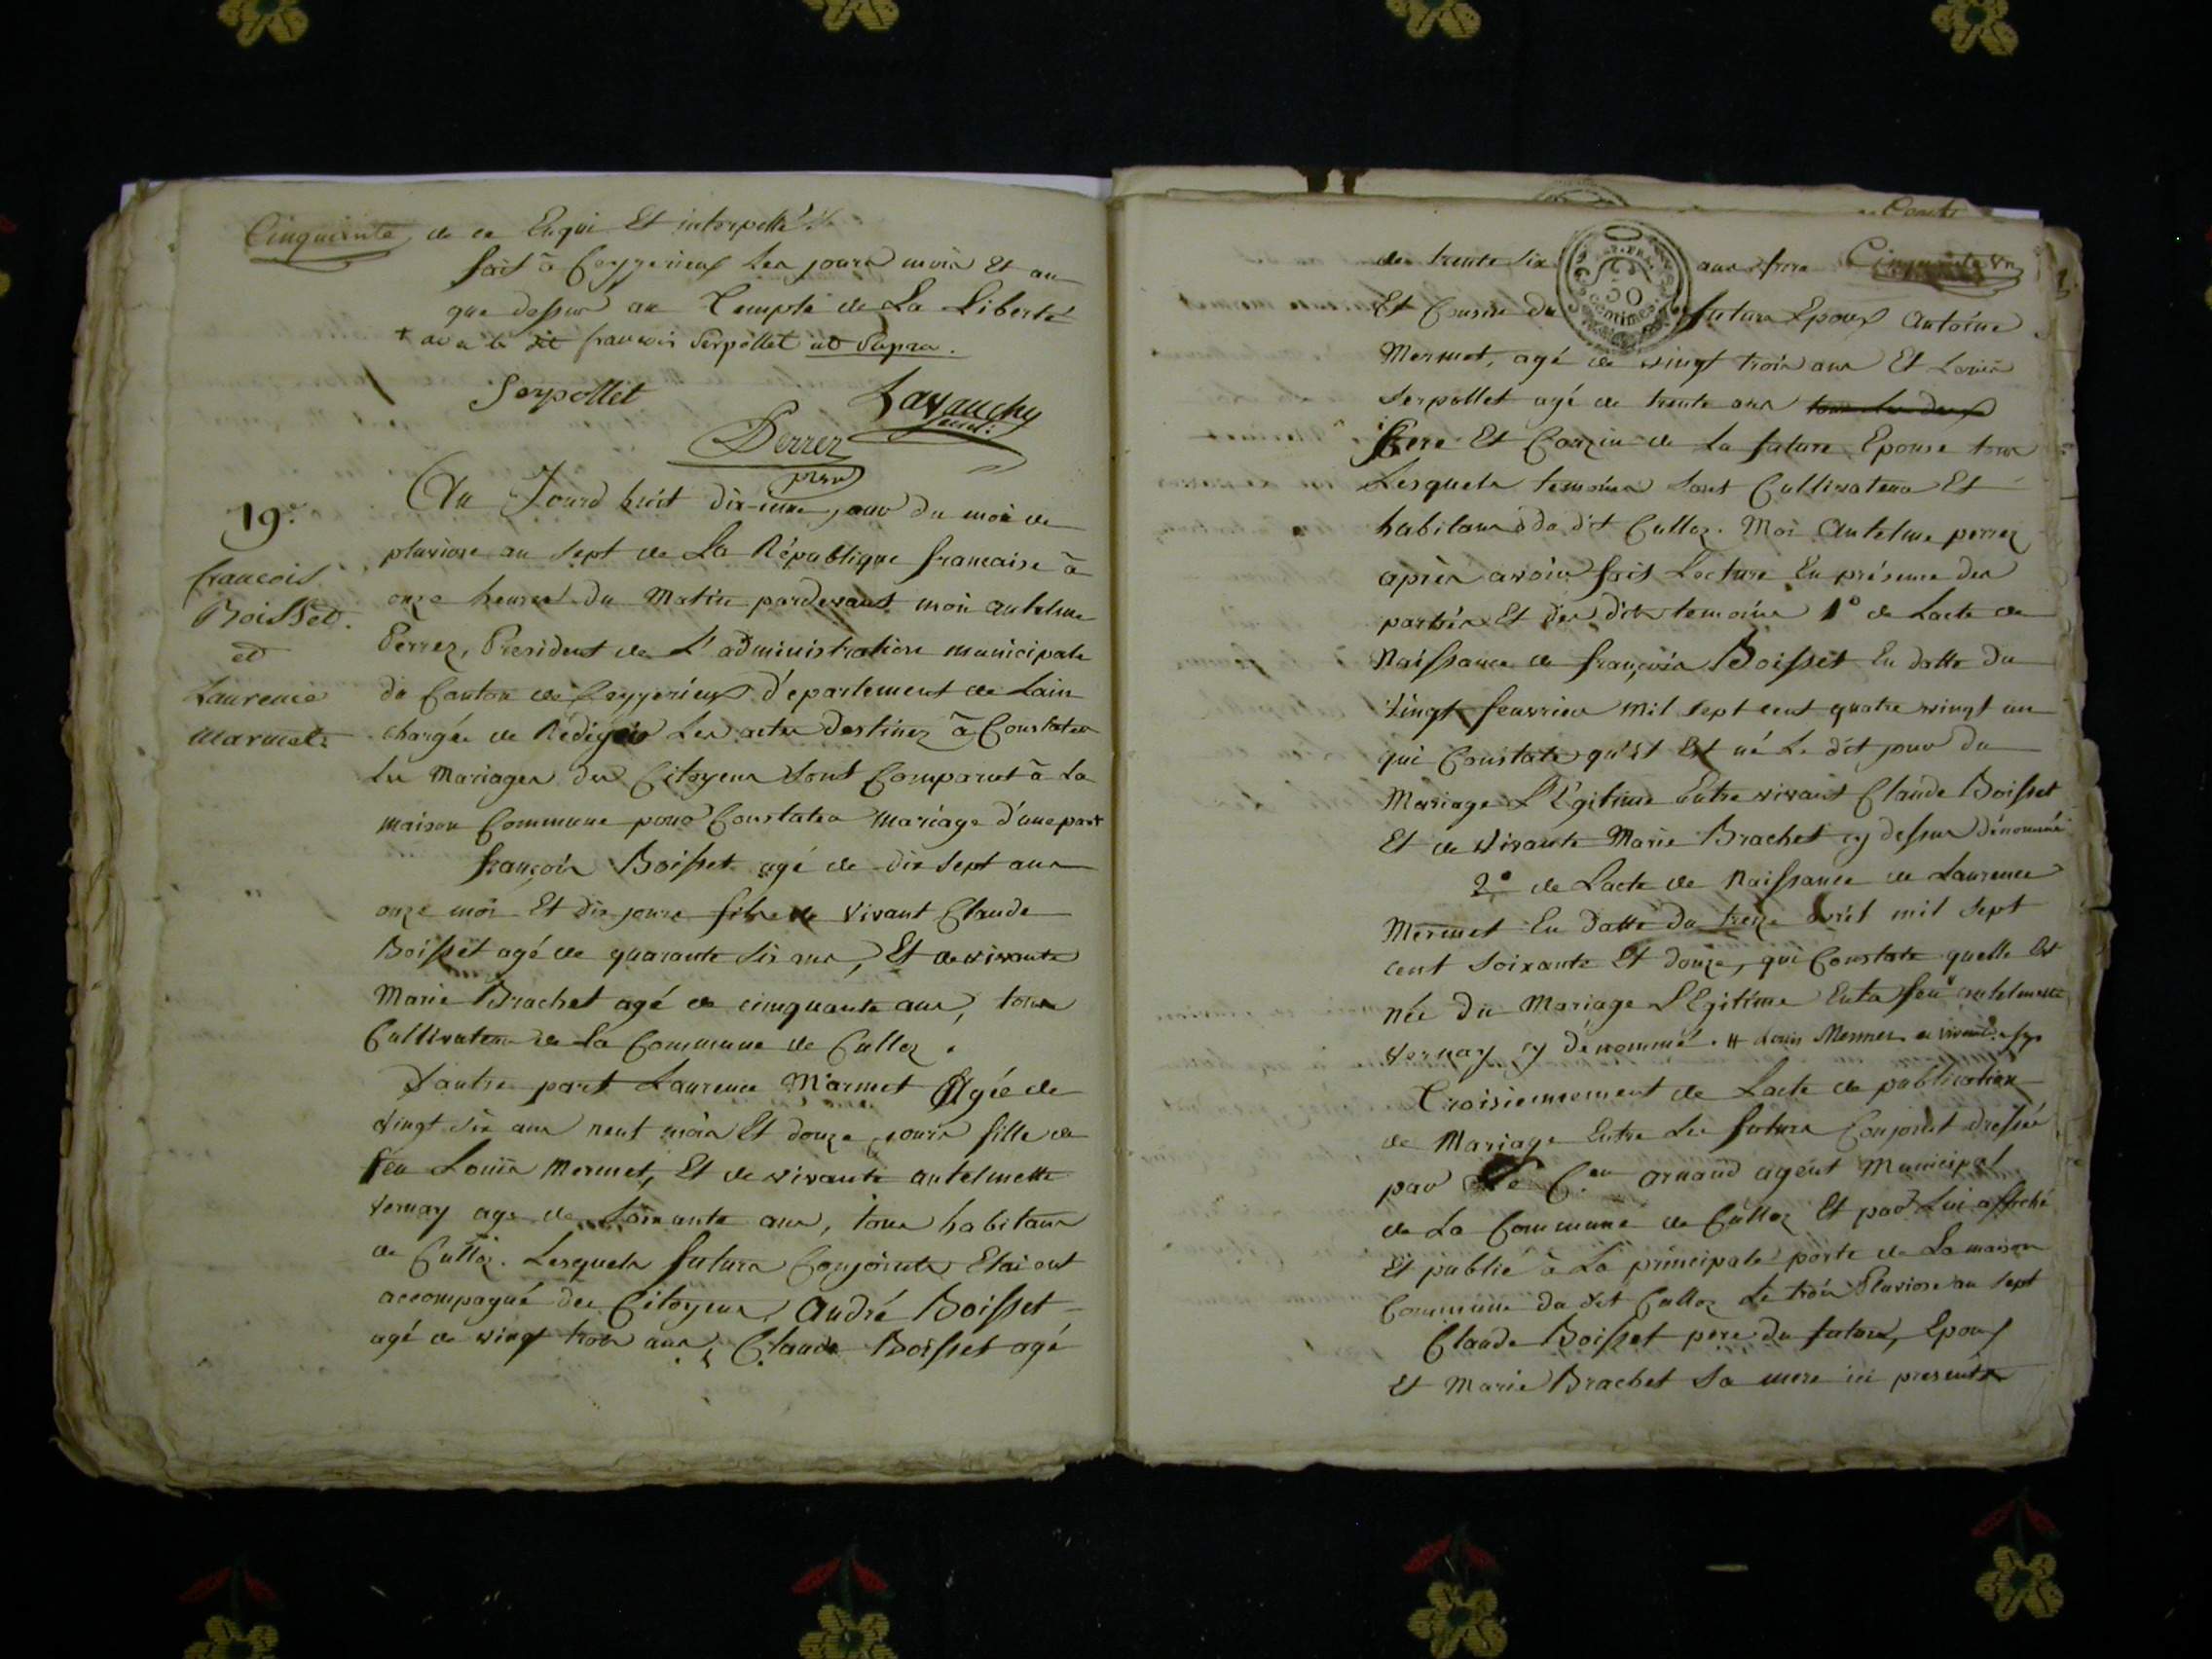 Cinquante
de ce Enqui Et interpellé
fait à Ceyzerieux Les jours mois Et an
que dessus au Temple de La Liberté
+ avec le dit francois Serpollet ut Supra.
Serpollet
Lavauchy
Perrez
19e
francois
Boisset
et
Laurence
Marmet
Au Jourd huit dix-neuf jour du mois de
pluviose an sept de La République francaise à
onze heures du Matin pardevant moi antelme
Perrez, President de L'administration municipale
du Canton de Ceyzerieux département de Lain
chargée de Rédiger Les actes Destinez à Constater
les Mariages des Citoyens sont Comparut à La
maison Commune pour Constater Mariage d'une part
françois Boisset agé de dix sept ans
onze mois Et dix jours fils de Vivant Claude
Boisset agé de quarante six ans, Et de vivante
Marie Brachet agé de cinquante ans, tous
Cultivateurs de La Commune de Culloz.
D'autre part Laurence Marmet Agée de
vingt six ans neuf mois Et douze jours fille de
feu Louis Mermet, Et de vivante antelmette
Vernay age de Soixante ans, tous habitans
de Culloz. Lesquels futurs Conjoints Etaient
accompagné des Citoyens, André Boisset
agé de vingt trois ans, Claude Boisset agé
de trente six
ans frere
Cinquante un
50
centimes
Et Cousin du
futur Epoux Antoine
Mermet, agé de vingt trois ans Et Louis
Serpollet agé de trente ans tous les deux
frere Et Couzin de La future Epouse tous
Lesquels temoins sont Cultivateurs Et
habitans du dit Culloz. Moi Antelme perrez
après avoir fait Lecture En présence des
parties Et des dits temoins 1° de Lacte de
Naissance de françois Boisset En datte du
Vingt feuvrier Mil sept cent quatre vingt un
qui Constate qu'il Est né Le dit jour du
Mariage L'Egitime Entre vivant Claude Boisset
Et de Vivante Marie Brachet cy dessus dénommé
2° de Lacte de Naissance de Laurence
Mermet En datte du treize avril mil sept
cent soixante Et douze, qui Constate quelle Est
née du Mariage L'Egitime Entre feu antelmette
Vernay cy dénommé. # Louis Mermet
Troisiemement de Lacte de publication
de Mariage Entre Les futurs Conjoint dressée
par Le Cen Arnaud agent Municipal
de La Commune de Culloz Et par Lui affiché
Et publié à La principale porte de La maison
Commune du dit Culloz Le trois Pluviose an sept
Claude Boisset pere du futur, Epoux
Et Marie Brachet sa mere ici presente